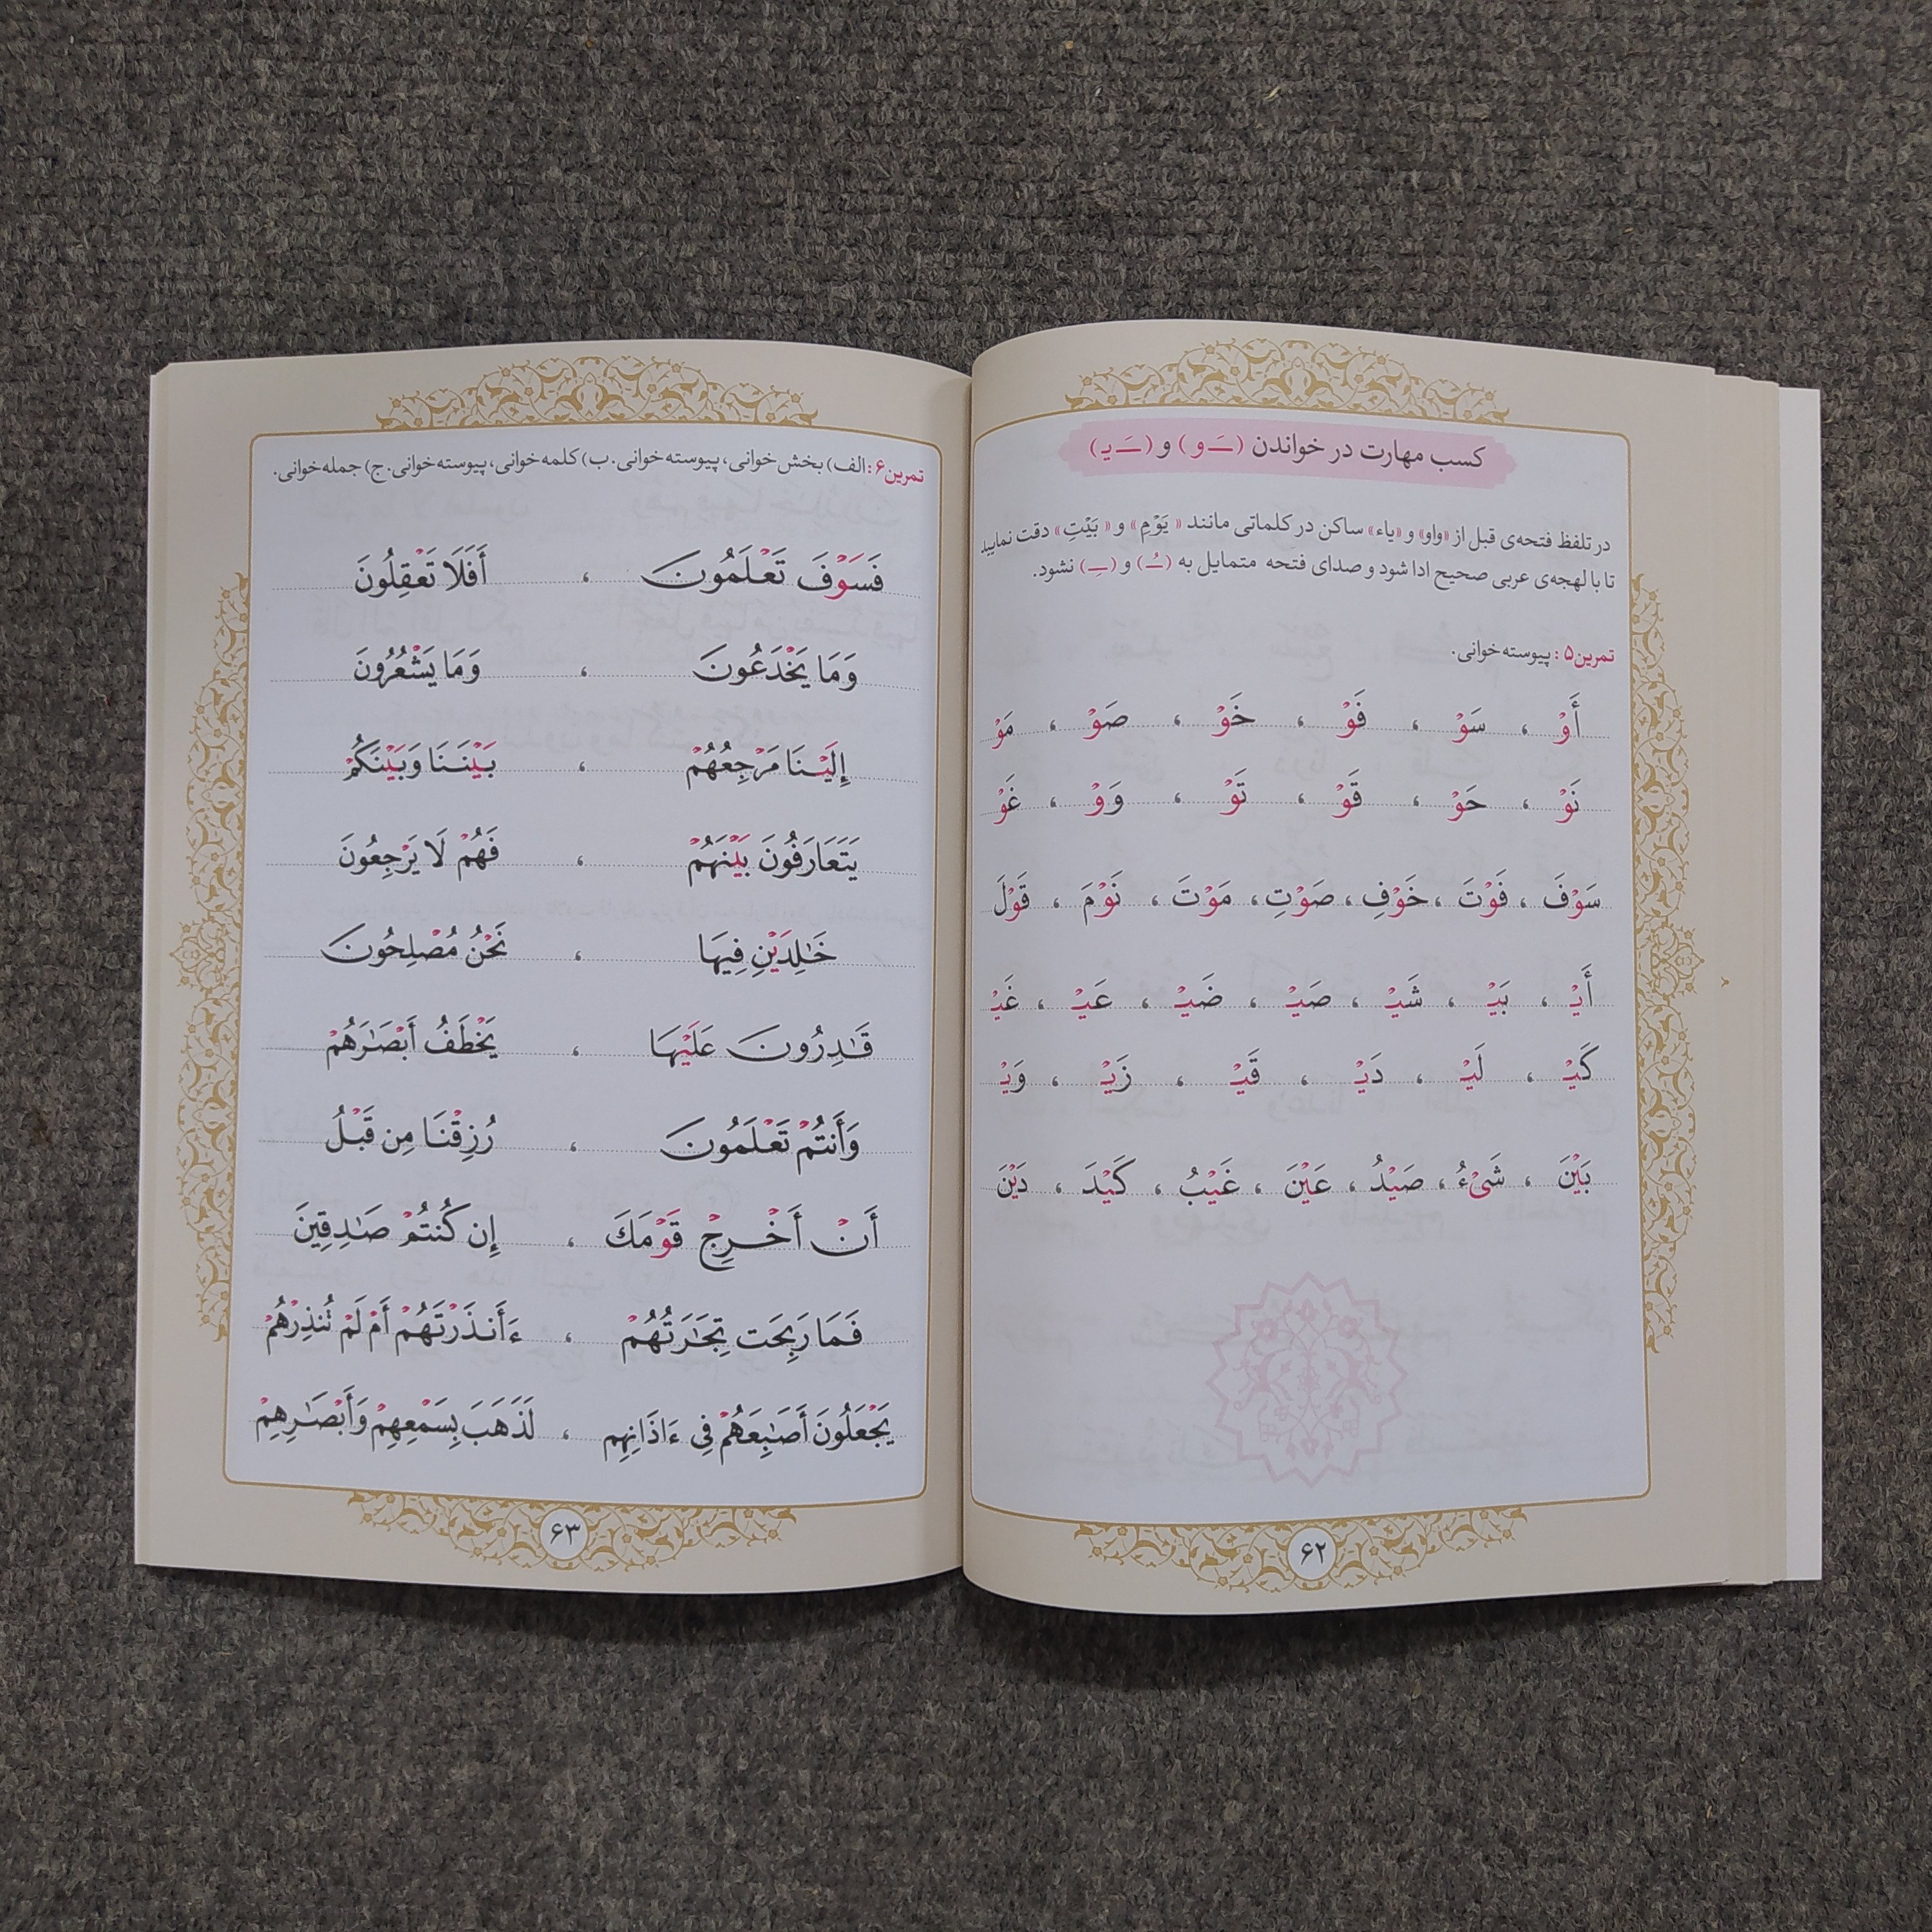 کسب مهارت در خواندن (ـَ و) و (ـَ یـ)
در تلفظ فتحه‌ی قبل از «واو» و «یاء» ساکن در کلماتی مانند «یَوْمِ» و «بَیْتِ» دقت نمایید
تا با لهجه‌ی عربی صحیح ادا شود و صدای فتحه متمایل به (ـُ) و (ـِ) نشود.
تمرین۵: پیوسته‌خوانی.
أَوْ ، سَوْ ، فَوْ ، خَوْ ، صَوْ ، مَوْ
نَوْ ، حَوْ ، قَوْ ، تَوْ ، وَوْ ، غَوْ
سَوْفَ ، فَوْتَ ، خَوْفِ ، صَوْتِ ، مَوْتَ ، نَوْمَ ، قَوْلَ
أَیْـ ، بَیْـ ، شَیْـ ، صَیْـ ، ضَیْـ ، عَیْـ ، غَیْـ
کَیْـ ، لَیْـ ، دَیْـ ، قَیْـ ، زَیْـ ، وَیْـ
بَیْنَ ، شَیْءُ ، صَیْدُ ، عَیْنَ ، غَیْبُ ، کَیْدَ ، دَیْنَ
۶۲
تمرین۶: الف) بخش‌خوانی، پیوسته‌خوانی. ب) کلمه‌خوانی، پیوسته‌خوانی. ج) جمله‌خوانی.
فَسَوْفَ تَعْلَمُونَ ، أَفَلَا تَعْقِلُونَ
وَمَا یَخْدَعُونَ ، وَمَا یَشْعُرُونَ
إِلَیْنَا مَرْجِعُهُمْ ، بَیْنَنَا وَبَیْنَکُمْ
یَتَعَارَفُونَ بَیْنَهُمْ ، فَهُمْ لَا یَرْجِعُونَ
خَٰلِدَیْنِ فِیهَا ، نَحْنُ مُصْلِحُونَ
قَٰدِرُونَ عَلَیْهَا ، یَخْطَفُ أَبْصَٰرَهُمْ
وَأَنتُمْ تَعْلَمُونَ ، رُزِقْنَا مِن قَبْلُ
أَنْ أَخْرِجْ قَوْمَكَ ، إِن کُنتُمْ صَٰدِقِینَ
فَمَا رَبِحَت تِجَٰرَتُهُمْ ، ءَأَنذَرْتَهُمْ أَمْ لَمْ تُنذِرْهُمْ
یَجْعَلُونَ أَصَٰبِعَهُمْ فِی ءَاذَانِهِم ، لَذَهَبَ بِسَمْعِهِمْ وَأَبْصَٰرِهِمْ
۶۳